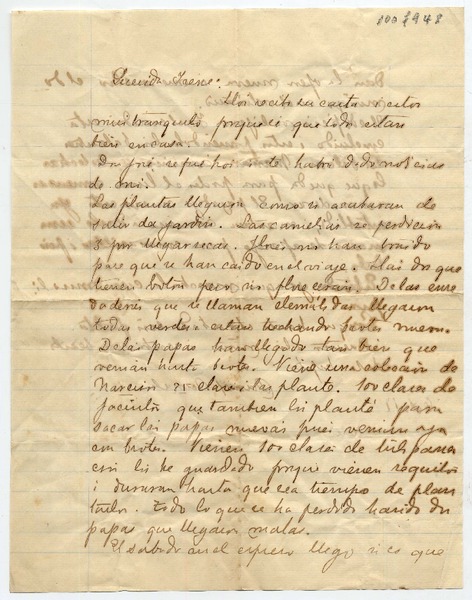 100 f 948
Querida Irene:
Hoy recibi su carta i estoi
mui tranquilo porque se que todos estan
bien en casa.
Don José se fue hoi i te habrá dado noticias
de mi.
Las plantas llegaron como si acabaran de
salir da jardin. Las camelias se perdieron
3 por llegar secas. Flores no han traido
para que se han caido en el viaje. Hai dos que
tienen boton pero no florecerán. De las enre
daderas que se llaman clemátidas llegaron
todas verdes i estan hechando brotes nuevos.
De las papas han llegado tambien que
venian harto brotes. Viene una coleccion de
Narcisos 21 clases i las planté. 100 clases de
Jacintos que tambien los planté para
sacar las papas nuevas pues venian ya
con brotes. Vienen 100 clases de tulipanes
esos los he guardado porque vienen sequitos
i duraran hasta que sea tiempo de plan
tarlos. Todo lo que se ha perdido ha sido dos
papas que llegaron malas.
El sabado en el espreso llegó si es que